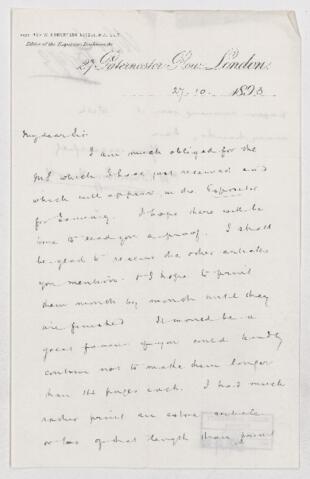 Editor of the Expositor, Bookman &c
27 Paternoster Row, London.
27. 10. 1893
My dear Sir
I am much obliged for the
MS which I have just received and
which will appear in the Expositor
for January. I hope there will be
time to send you a proof. I shall
be glad to receive the other articles
you mention & I hope to print
them month by month until they
are finished. It would be a
great favour if you could kindly
contrive not to make them longer
than 14 pages each. I had much
rather print an extra article
or two of that length than print